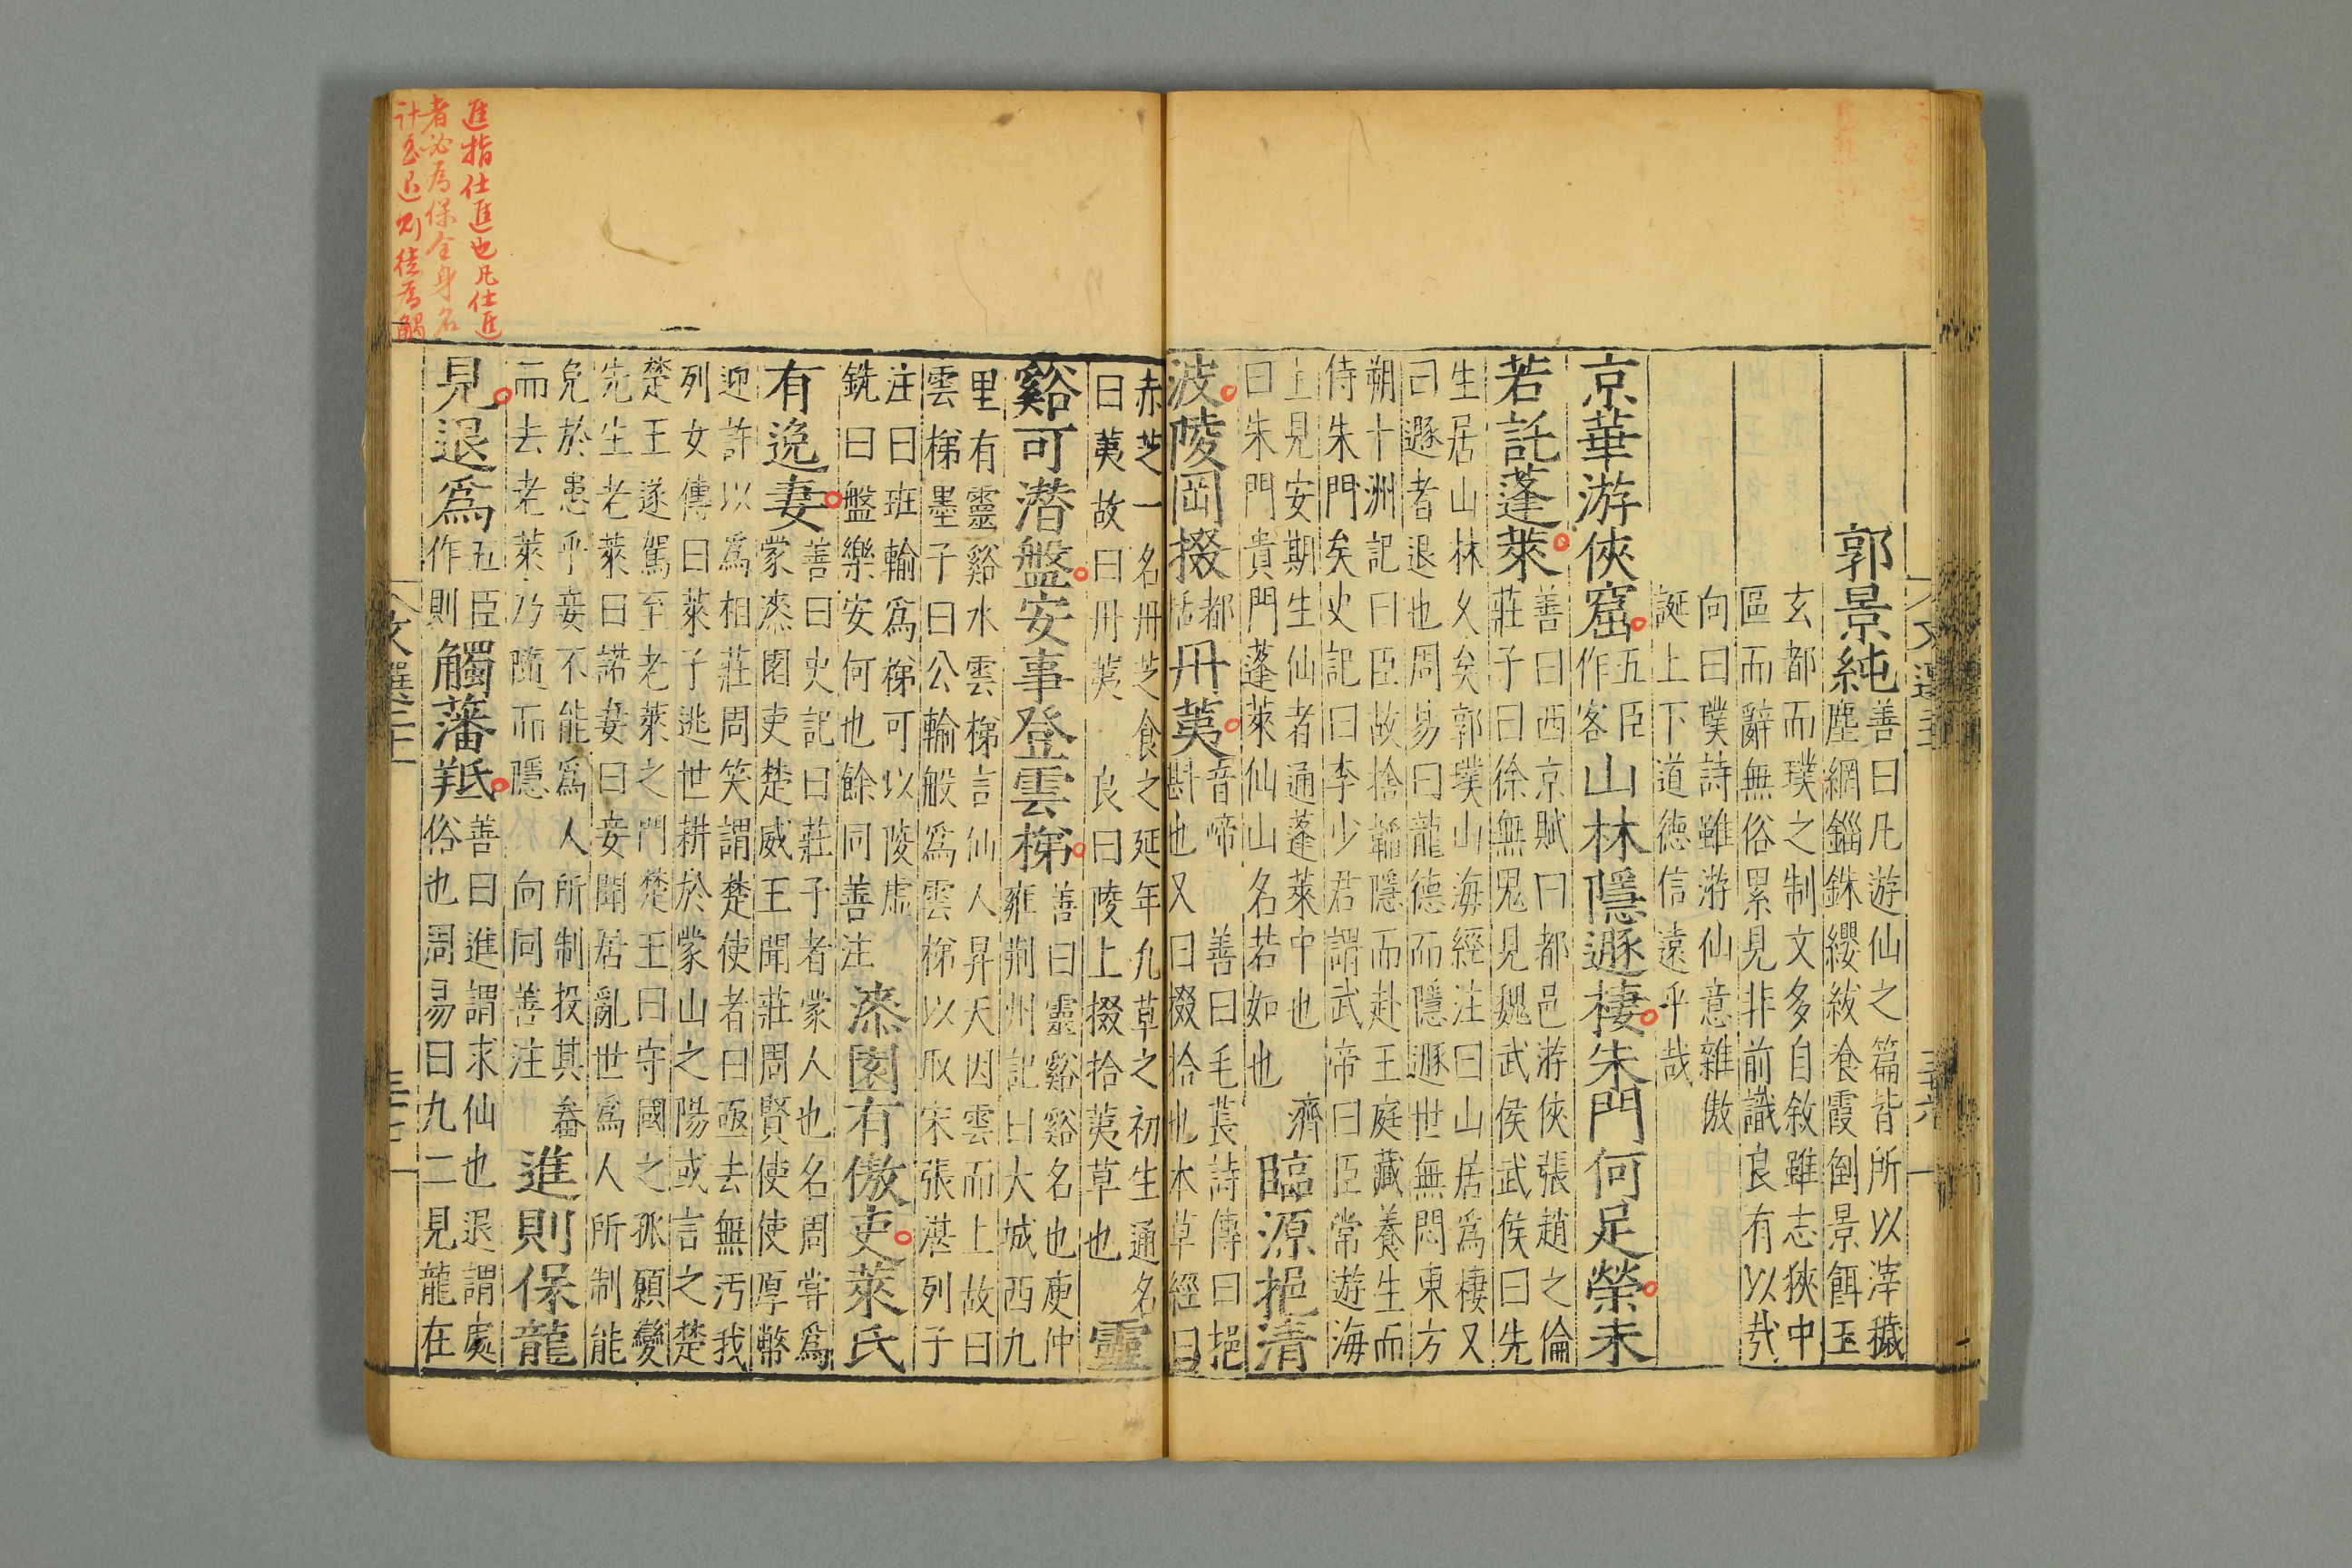 郭景純善曰凡遊仙之篇皆所以滓穢
塵網錙銖纓紱飡霞倒景餌玉
玄都而璞之制文多自敘雖志狹中
區而辭無俗累見非前識良有以㢤
向曰璞詩雖游仙意雜傲
誕上下道德信遠乎哉
京華游俠窟五臣作客山林隱遯棲朱門何足榮未
若託蓬萊善曰西京賦曰都邑游俠張趙之倫
莊子曰徐無鬼見魏武侯武侯曰先
生居山林久矣郭璞山海經注曰山居爲棲又
曰遯者退也周易曰龍德而隱遯世無悶東方
朔十洲記曰臣故捨韜隱而赴王庭藏養生而
侍朱門矣史記曰李少君謂武帝曰臣常遊海
上見安期生仙者通蓬萊中也 濟
曰朱門貴門蓬萊仙山名若如也臨源挹清
波陵岡掇都括丹荑音啼 善曰毛萇詩傳曰挹
斟也又曰掇拾也本草經曰
赤芝一名丹芝食之延年凡草之初生通名
曰荑故曰丹荑 良曰陵上掇拾荑草也靈
谿可潜盤安事登雲梯善曰靈谿谿名也庾仲
雍荆州記曰大城西九
里有靈谿水雲梯言仙人昇天因雲而上故曰
雲梯墨子曰公輸般爲雲梯以取宋張湛列子
注曰班輸爲梯可以陵虛
銑曰盤樂安何也餘同善注漆園有傲吏萊氏
有逸妻善曰史記曰莊子者蒙人也名周嘗爲
蒙漆園吏楚威王聞莊周賢使使厚幣
迎許以爲相莊周笑謂楚使者曰亟去無污我
列女傳曰萊子逃世耕於蒙山之陽或言之楚
楚王遂駕至老萊之門楚王曰守國之孤願變
先生老萊曰諾妻曰妾聞居亂世爲人所制能
免於患乎妾不能爲人所制投其畚
而去老萊乃隨而隱 向同善注進則保龍
見退爲五臣作則觸藩羝善曰進謂求仙也退謂處
俗也周易曰九二見龍在
進指仕進也凡仕進
者必爲保全身名
計至退則徒爲觸